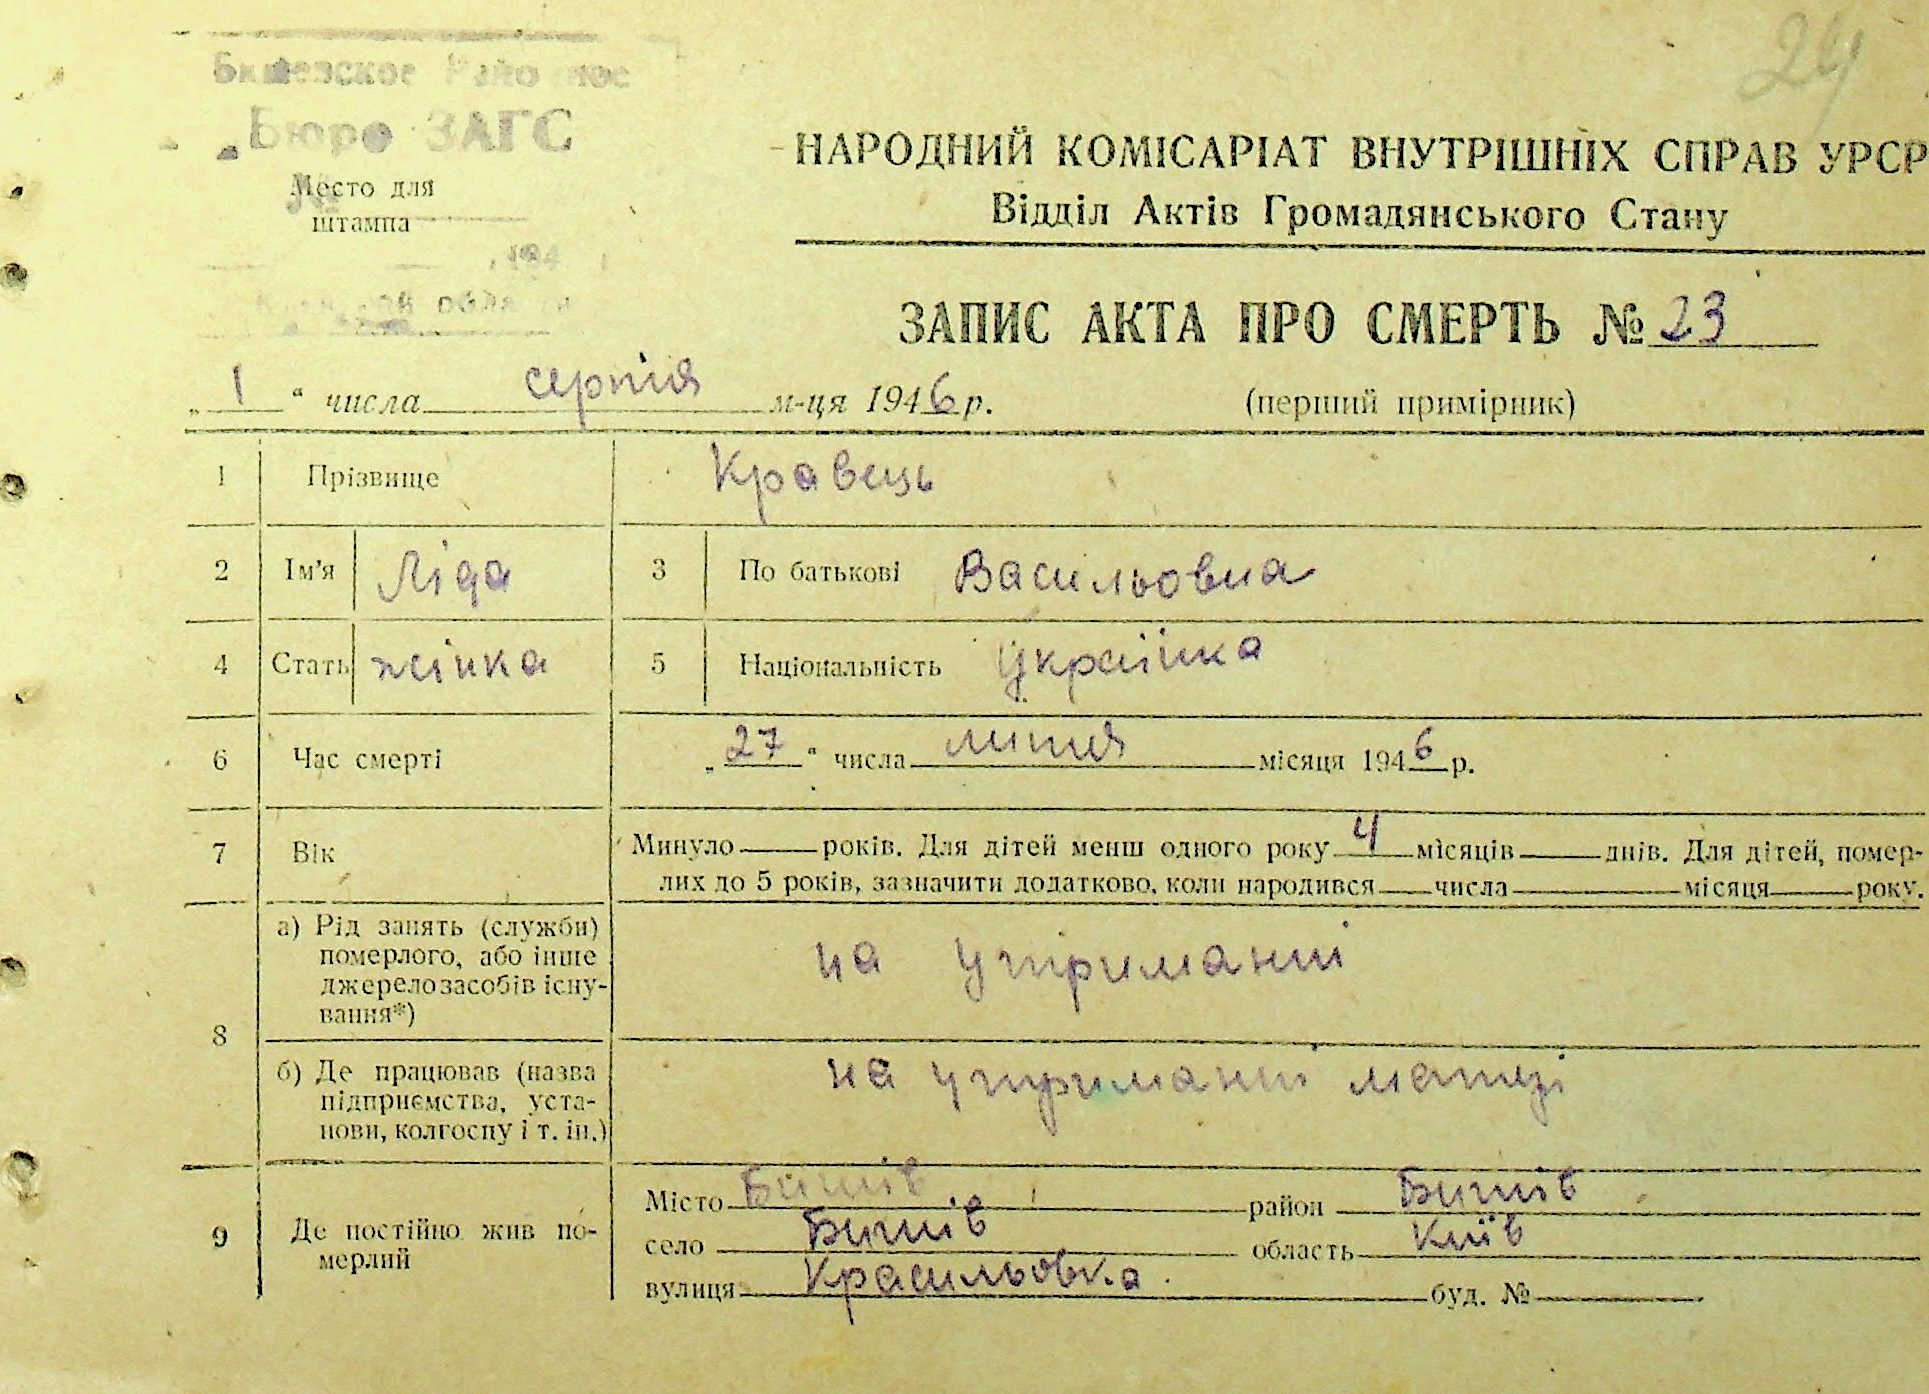 24
Бишевское Районное
Бюро ЗАГС
Место для
штампа
194
области
НАРОДНИЙ КОМІСАРІАТ ВНУТРІШНІХ СПРАВ УРСР
Відділ Актів Громадянського Стану
ЗАПИС АКТА ПРО СМЕРТЬ № 23
„ 1 “ числа серпня м-ця 1946 р. (перший примірник)
1 Прізвище Кравець
2 Ім’я Ліда 3 По батькові Васильовна
4 Стать жінка 5 Національність Українка
6 Час смерті „ 27 “ числа липня місяця 1946 р.
7 Вік Минуло ___ років. Для дітей менш одного року 4 місяців ___ днів. Для дітей, помер-
лих до 5 років, зазначити додатково, коли народився ___ числа ___ місяця ___ року.
8 а) Рід занять (служби)
померлого, або інше
джерело засобів існу-
вання*)
на утриманні
б) Де працював (назва
підприємства, уста-
нови, колгоспу і т. ін.)
на утриманні матері
9 Де постійно жив по-
мерлий
Місто Бишів район Бишів
село Бишів область Київ
вулиця Красильовка буд. №